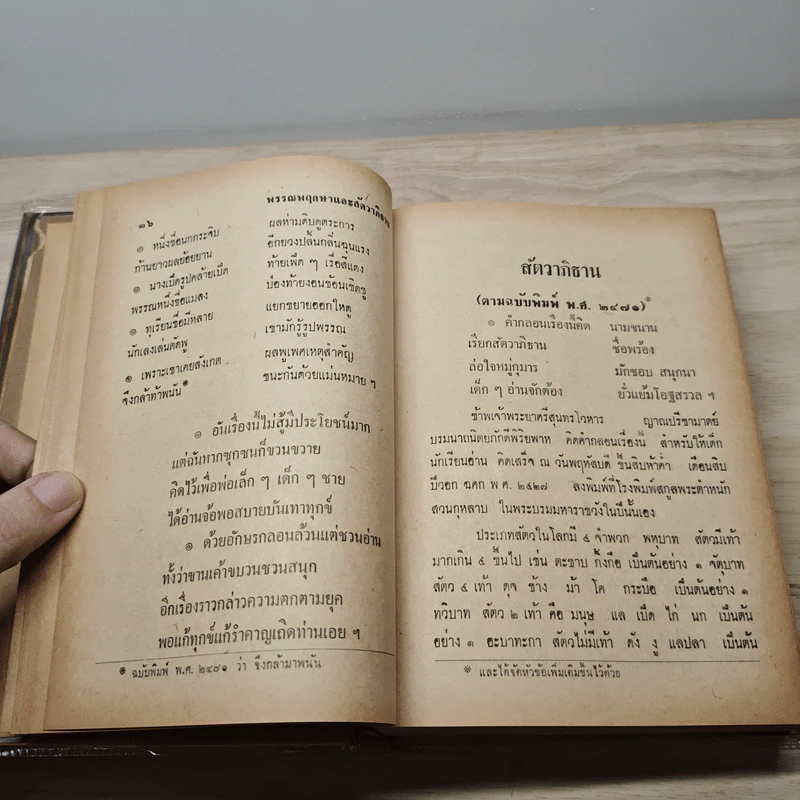 ๓๖
พรรณพฤกษาและสัตวาภิธาน
๏ หนึ่งชื่อนกกระจิบ ผลห่ามดิบดูตระการ
ก้านยาวผลย้อยยาน อีกยวงปลิ้นกลิ่นฉุนแรง
๏ นางเบ็ดรูปคล้ายเบ็ด ท้ายเพ็ด ๆ เรื่อสีแดง
พรรณหนึ่งชื่อแมลง ป่องท้ายงอนช้อนเชิดชู
๏ ทุเรียนชื่อมีหลาย แยกขยายออกใหดู
นักเลงเล่นตัดพู เขามักรู้รูปพรรณ
๏ เพราะเขาเคยสังเกต ผลพูเพศเหตุสำคัญ
จึงกล้าท้าพนัน* ชนะกันด้วยแม่นหมาย ฯ
๏ อันเรื่องนี้ไม่สู้มีประโยชน์มาก
แต่ฉันหากซุกซนก็ขวนขวาย
คิดไว้เพื่อพ่อเล็ก ๆ เด็ก ๆ ชาย
ได้อ่านจ้อพอสบายบันเทาทุกข์
๏ ด้วยอักษรกลอนล้วนแต่ชวนอ่าน
ทั้งว่าขานเค้าขบวนชวนสนุก
อีกเรื่องราวกล่าวความตกตามยุค
พอแก้ทุกข์แก้รำคาญเถิดท่านเอย ฯ
* ฉบับพิมพ์ พ.ศ. ๒๔๗๑ ว่า จึงกล้ามาพนัน
สัตวาภิธาน
(ตามฉบับพิมพ์ พ.ศ. ๒๔๗๑)*
๏ คำกลอนเรื่องนี้คิด นามขนาน
เรียกสัตวาภิธาน ชื่อพร้อง
ล่อใจหมู่กุมาร มักชอบ สนุกนา
เด็ก ๆ อ่านจักต้อง ยั่วแย้มโอฐสรวล ฯ
ข้าพเจ้าพระยาศรีสุนทรโวหาร ญาณปรีชามาตย์
บรมนาถนิตยภักดีพิริยพาห คิดคำกลอนเรื่องนี้ สำหรับให้เด็ก
นักเรียนอ่าน คิดเสร็จ ณ วันพฤหัสบดี ขึ้นสิบห้าค่ำ เดือนสิบ
ปีวอก ฉศก พ.ศ. ๒๔๒๗ ลงพิมพ์ที่โรงพิมพ์สกูลพระตำหนัก
สวนกุหลาบ ในพระบรมมหาราชวังในปีนั้นเอง
ประเภทสัตวในโลกมี ๔ จำพวก พหุบาท สัตวมีเท้า
มากเกิน ๔ ขึ้นไป เช่น ตะขาบ กิ้งกือ เป็นต้นอย่าง ๑ จัตุบาท
สัตว ๔ เท้า ดุจ ช้าง ม้า โค กระบือ เป็นต้นอย่าง ๑
ทวิบาท สัตว ๒ เท้า คือ มนุษ แล เป็ด ไก่ นก เป็นต้น
อย่าง ๑ อะบาทะกา สัตวไม่มีเท้า ดัง งู แลปลา เป็นต้น
* และได้จัดหัวข้อเพิ่มเติมขึ้นไว้ด้วย